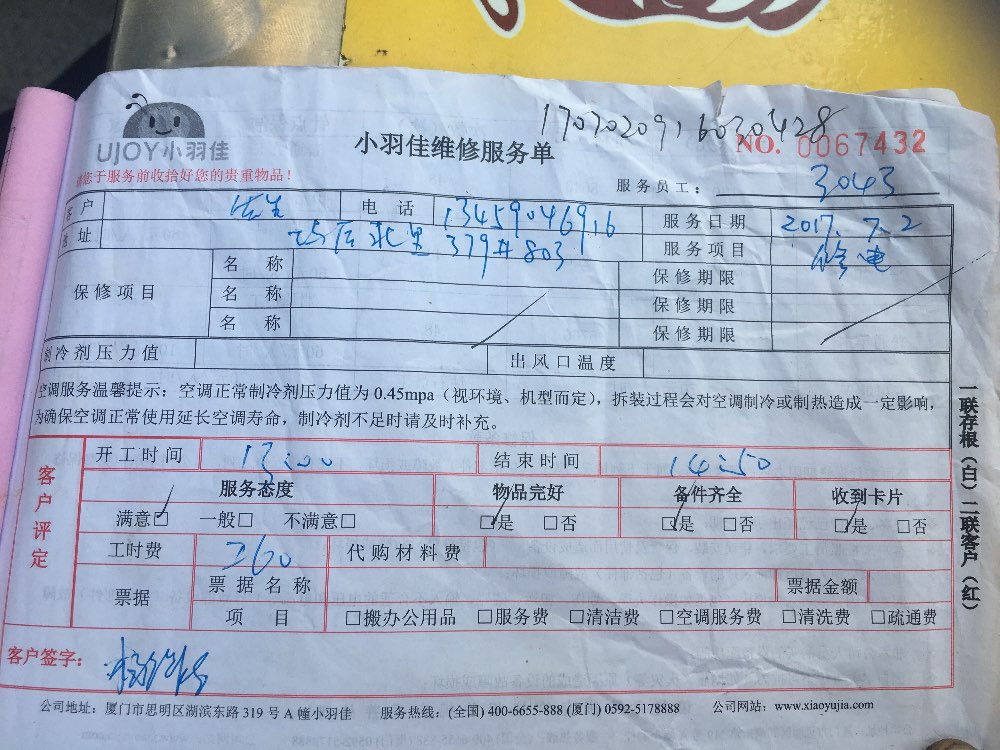 1707020916030428
UJOY小羽佳
小羽佳维修服务单
NO. 0067432
请您于服务前收拾好您的贵重物品！
服务员工： 3043
客户 电话 13459046916 服务日期 2017.7.2
地址 后 里 379#803 服务项目 修电
保修项目 名称 保修期限
名称 保修期限
名称 保修期限
制冷剂压力值 出风口温度
空调服务温馨提示：空调正常制冷剂压力值为0.45mpa（视环境、机型而定），拆装过程会对空调制冷或制热造成一定影响，
为确保空调正常使用延长空调寿命，制冷剂不足时请及时补充。
客户评定
开工时间 13:00 结束时间 14:50
服务态度 物品完好 备件齐全 收到卡片
满意☑ 一般□ 不满意□ ☑是 □否 ☑是 □否 ☑是 □否
工时费 260 代购材料费
票据 票据名称 票据金额
项目 □搬办公用品 □服务费 □清洁费 □空调服务费 □清洗费 □疏通费
客户签字：
公司地址：厦门市思明区湖滨东路319号A幢小羽佳 服务热线：(全国) 400-6655-888 (厦门) 0592-5178888 公司网站：www.xiaoyujia.com
一联存根（白）二联客户（红）